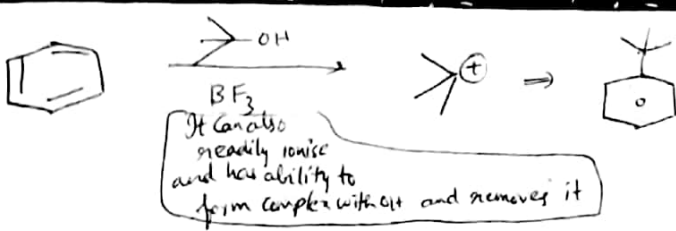 OH
BF3
It can also
readily ionise
and has ability to
form complex with OH and removes it